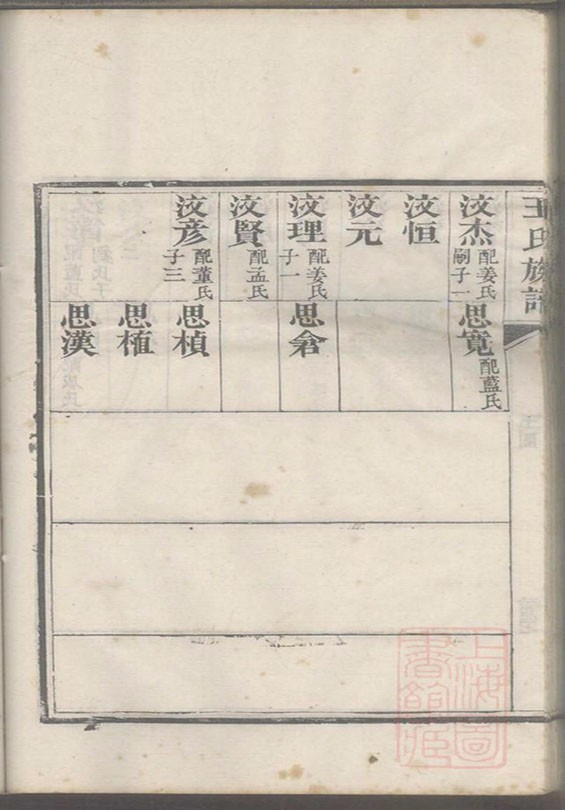 王氏族譜
汶杰 配姜氏 嗣子一
汶恒
汶元
汶理 配姜氏 子一
汶賢 配孟氏
汶彦 配董氏 子三
思寬 配藍氏
思倉
思楨
思植
思漢
上海圖書館藏